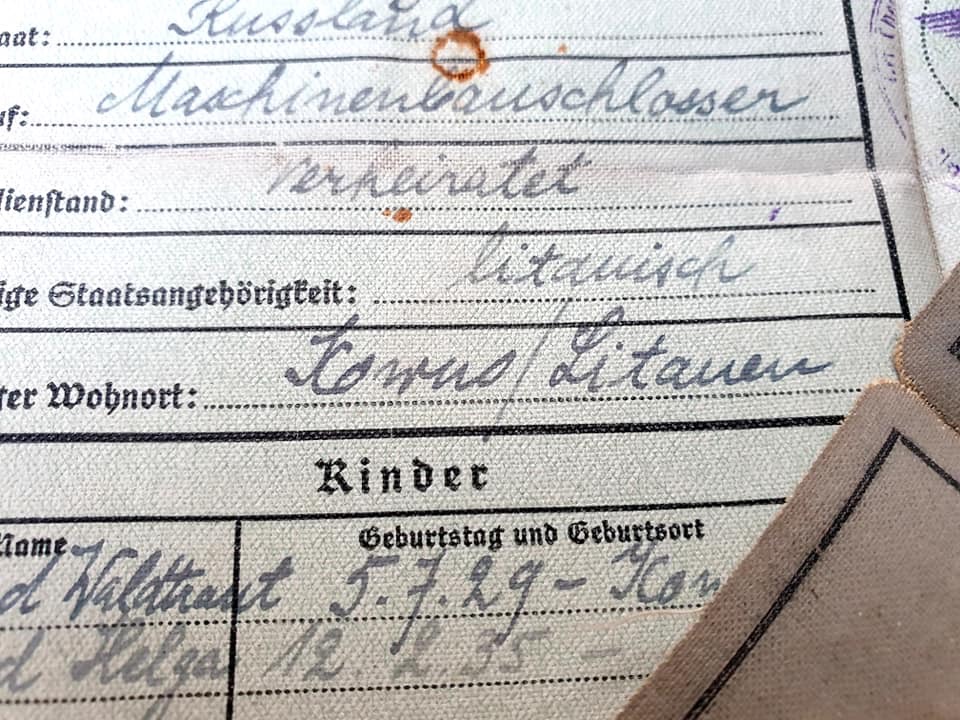 aat: Russland
uf: Maschinenbauschlosser
lienstand: verheiratet
ige Staatsangehörigkeit: litauisch
ter Wohnort: Kowno / Litauen
Kinder
Name Geburtstag und Geburtsort
d Waldtraut 5.7.29 - Kow
d Helga 12. 2 35 -